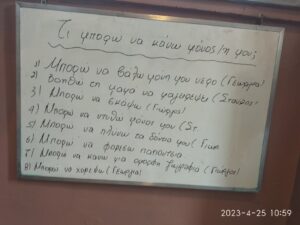 Τι μπορώ να κάνω μόνος/η μου;
1) Μπορώ να βάλω μόνη μου νερό (Γεωργία)
2) βοηθώ τη μαμά να μαγειρέψει (Σταύρος)
3) Μπορώ να σκάψω (Γιώργος)
4) Μπορώ να ντυθώ μόνος μου (Στ
5) Μπορώ να πλύνω τα δόντια μου (Γιώρ
6) Μπορώ να φορέσω παπούτσια
7) Μπορώ να κάνω μια όμορφη ζωγραφιά (Γιώργος)
8) Μπορώ να χορεύω (Γεωργία)
2023-4-25 10:59